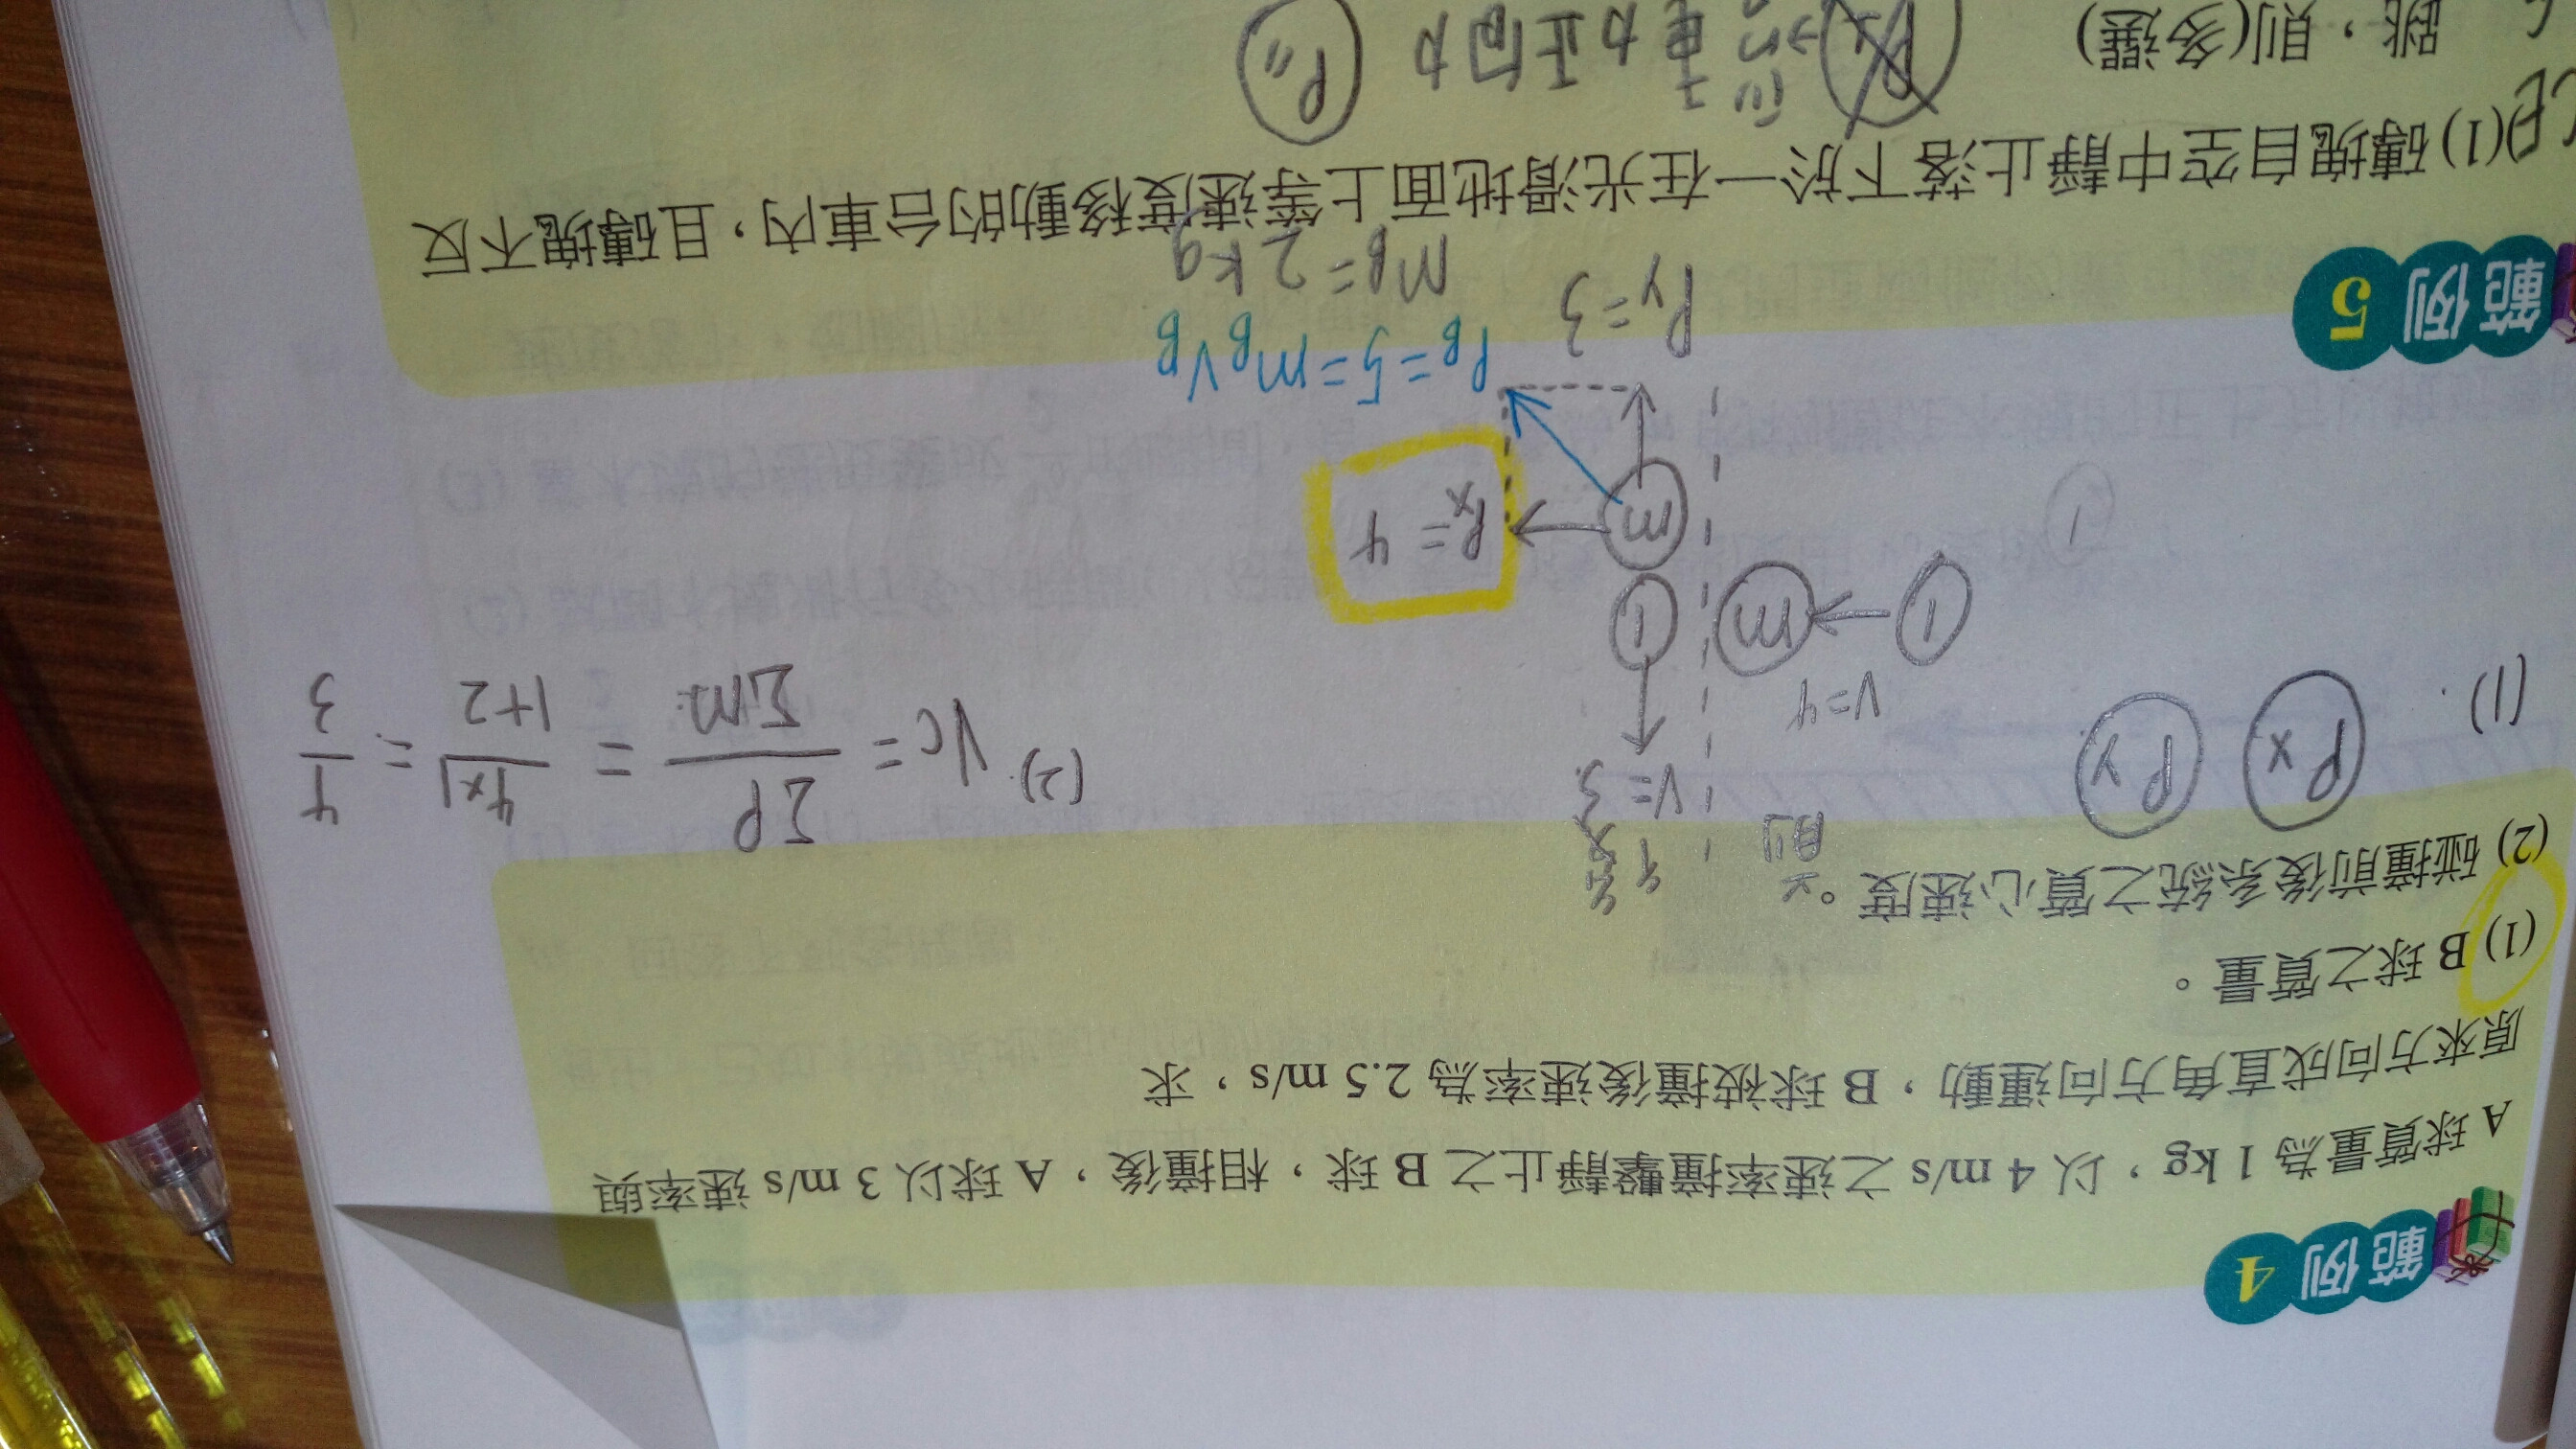 範例 4
A 球質量為 1 kg，以 4 m/s 之速率撞擊靜止之 B 球，相撞後，A 球以 3 m/s 速率與
原來方向成直角方向運動，B 球被撞後速率為 2.5 m/s，求
(1) B 球之質量。
(2) 碰撞前後系統之質心速度。
(1).
Px
Py
前
後
V=4
1
m
V=3
1
m
Px=4
Py=3
PB=5=mBVB
mB=2kg
(2). Vc=ΣP/Σm=4×1/1+2=4/3
範例 5
(1)磚塊自空中靜止落下於一在光滑地面上等速度移動的台車內，且磚塊不反
跳，則(多選)
P//